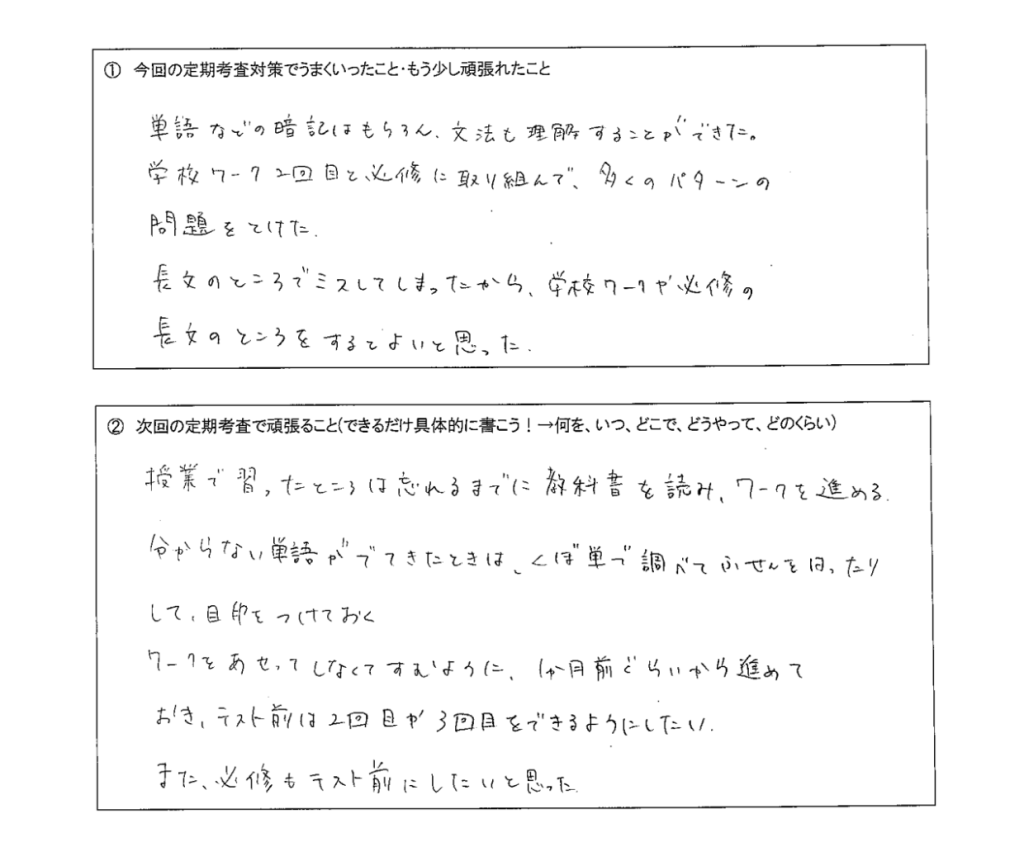 ① 今回の定期考査対策でうまくいったこと・もう少し頑張れたこと
単語などの暗記はもちろん、文法も理解することができた。
学校ワーク2回目と、必修に取り組んで、多くのパターンの
問題をとけた。
長文のところでミスしてしまったから、学校ワークや必修の
長文のところをするとよいと思った。
② 次回の定期考査で頑張ること(できるだけ具体的に書こう！→何を、いつ、どこで、どうやって、どのくらい)
授業で習ったところは忘れるまでに教科書を読み、ワークを進める。
分からない単語がでてきたときは、くぼ単で調べてふせんをはったり
して、目印をつけておく
ワークをあせってしなくてすむように、1か月前ぐらいから進めて
おき、テスト前は2回目か3回目をできるようにしたい。
また、必修もテスト前にしたいと思った。